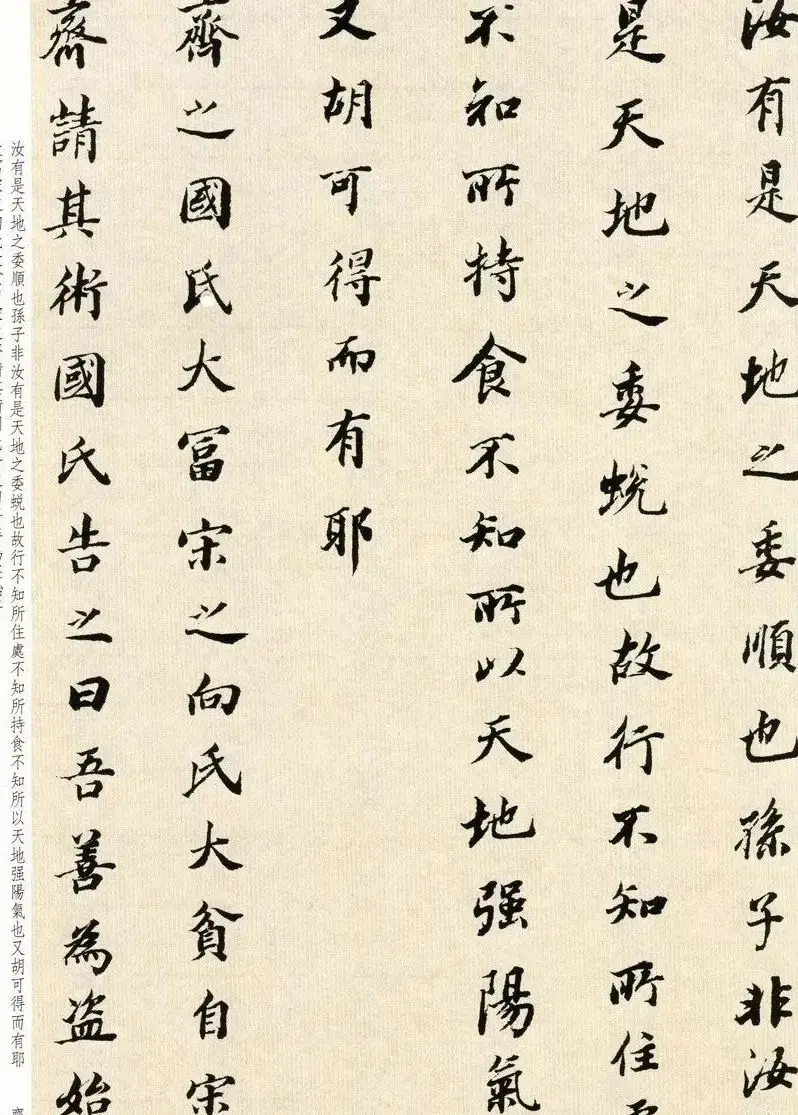 汝有是天地之委順也孫子非汝
是天地之委蛻也故行不知所住
不知所持食不知所以天地强陽氣
又胡可得而有耶
齊之國氏大冨宋之向氏大貧自宋
齊請其術國氏告之曰吾善為盗始
汝有是天地之委順也孫子非汝有是天地之委蛻也故行不知所住處不知所持食不知所以天地强陽氣也又胡可得而有耶